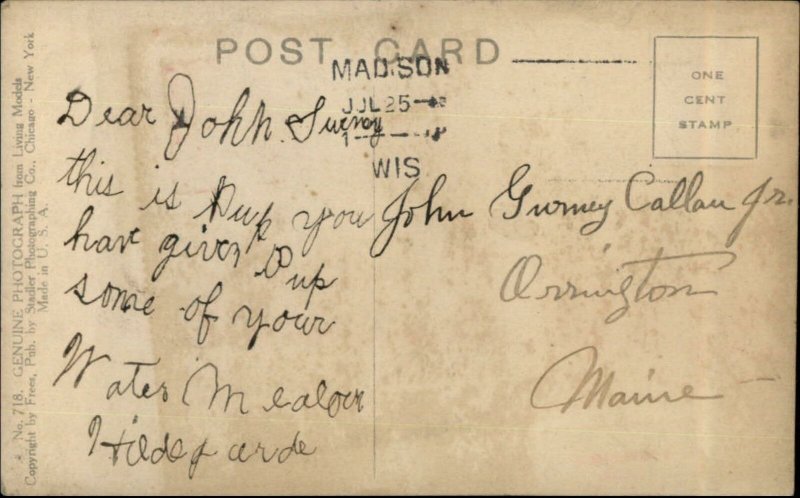 POST CARD
ONE
CENT
STAMP
MADISON
JUL 25
1
WIS
Dear John Gurney
this is Pup you
have given Pup
some of your
Water Mealoen
Hildegarde
John Gurney Callan Jr.
Orrington
Maine
No. 718. GENUINE PHOTOGRAPH from Living Models
Copyright by Frees, Pub. by Stadler Photographing Co., Chicago - New York
Made in U. S. A.